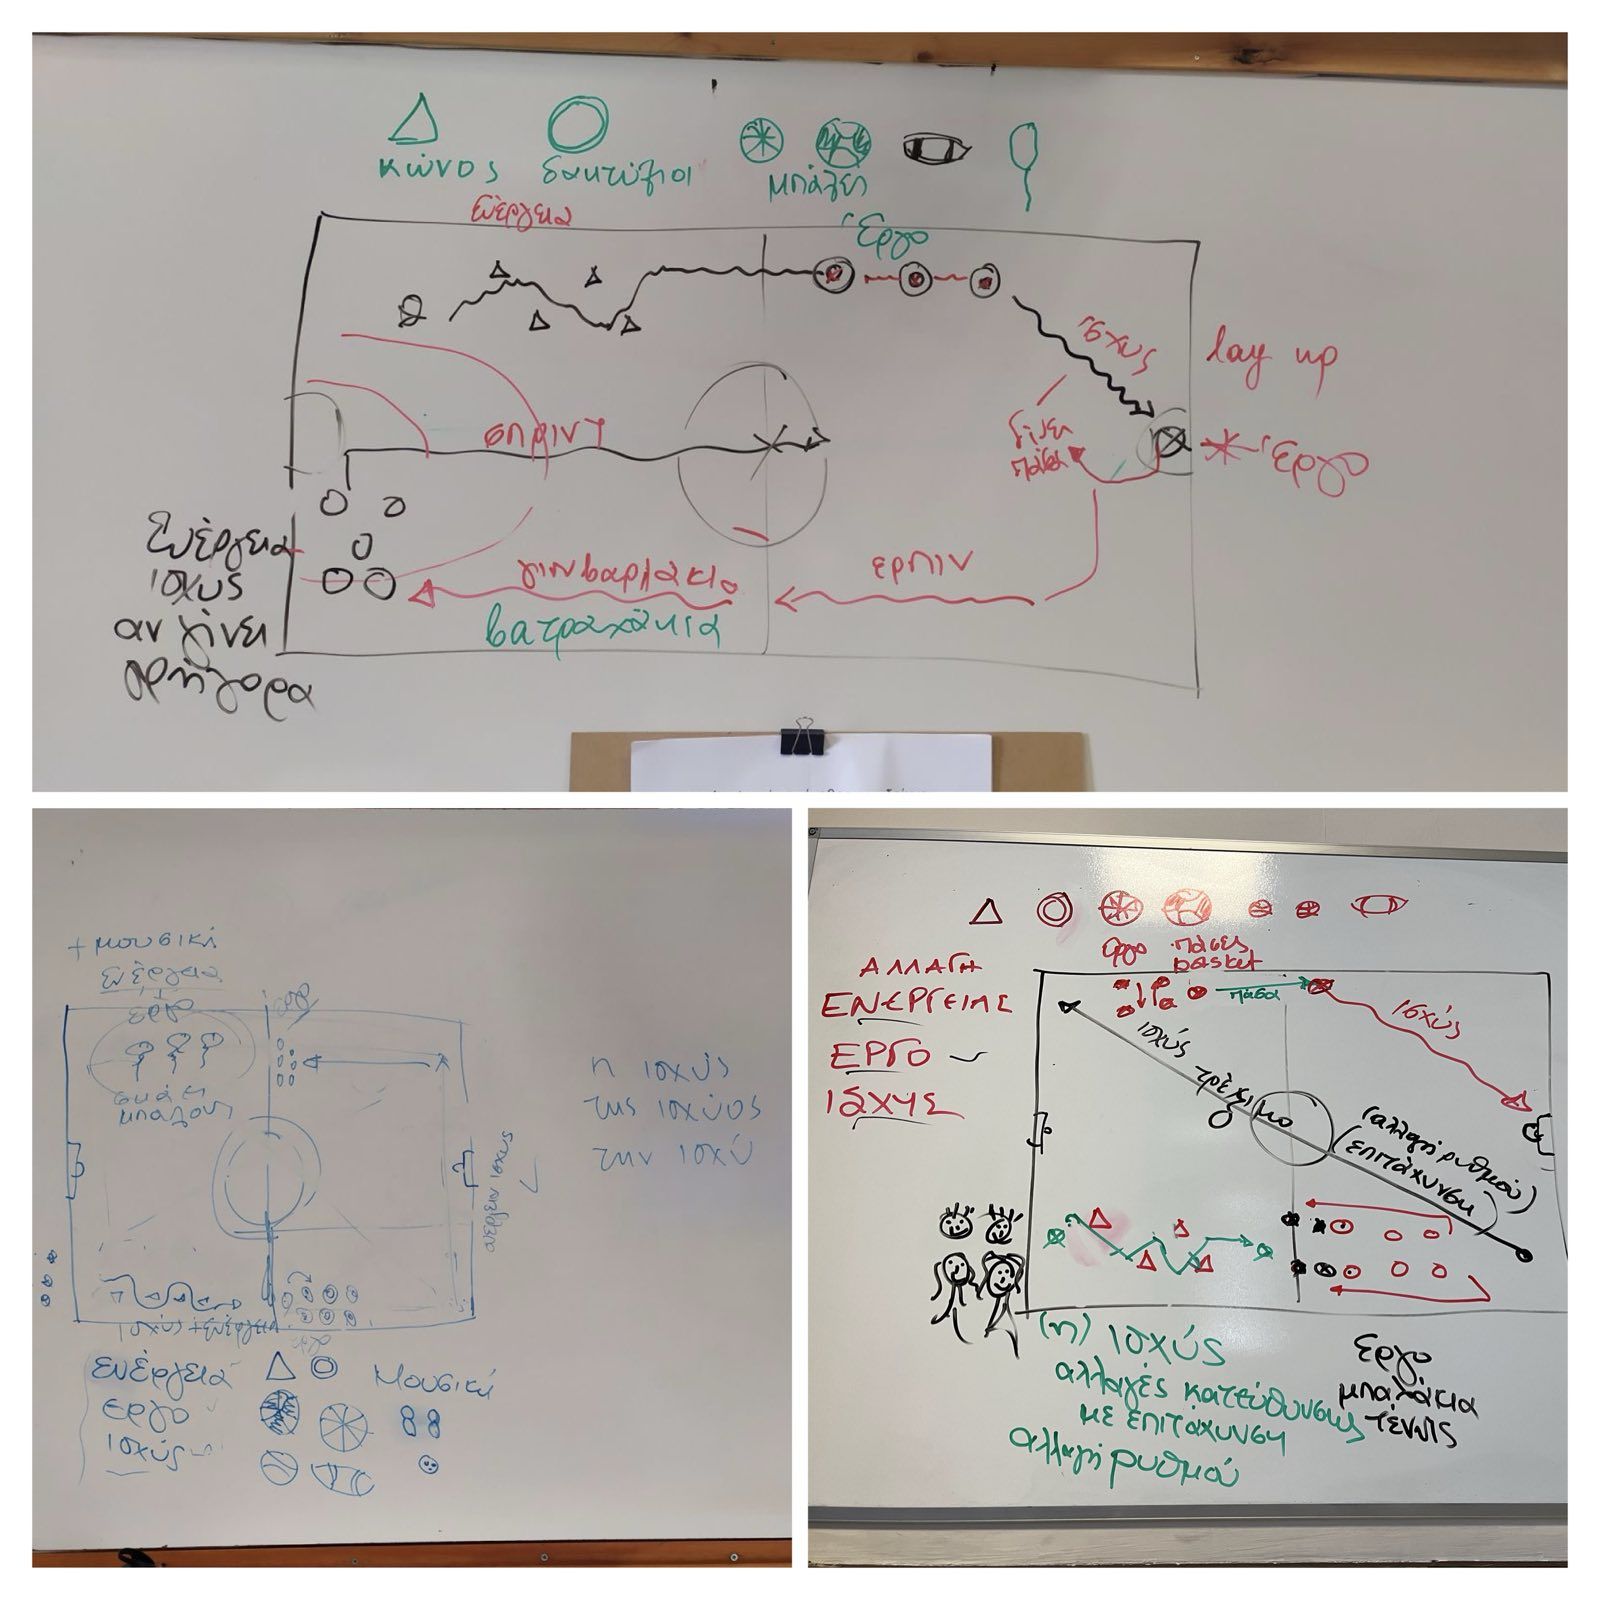 κώνος δακτύλιοι μπάλες
Ενέργεια
Έργο
ισχύς
lay up
Έργο
σπριντ
γίνει
πάσα
ερπιν
βατραχάκια
Ενέργεια
ισχυς
αν γίνει
γρήγορα
+ μουσική
Ενέργεια
έργο
μπαλόνι
ισχύς + ενέργεια
η ισχύς
της ισχύος
την ισχύ
ενέργεια
έργο
ισχύς
Μουσική
έργο πάσες
basket
πάσα
ΑΛΛΑΓΗ
ΕΝΕΡΓΕΙΑΣ
ΕΡΓΟ
ΙΣΧΥΣ
ισχύς
ισχύς
τρέξιμο
(αλλαγή ρυθμού)
(επιτάχυνση)
(η) ισχύς
αλλαγές κατεύθυνσης
με επιτάχυνση
αλλαγή ρυθμού
έργο
μπαλάκια
τέννις